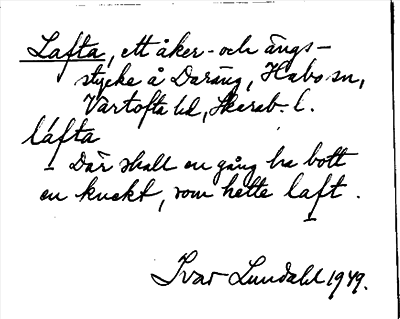 Lafta, ett åker- och ängs-
stycke å Daräng, Habo sn,
Vartofta hd, Skarab. l.
láfta
– Där skall en gång ha bott
en knekt, som hette laft.
Ivar Lundahl 1949.